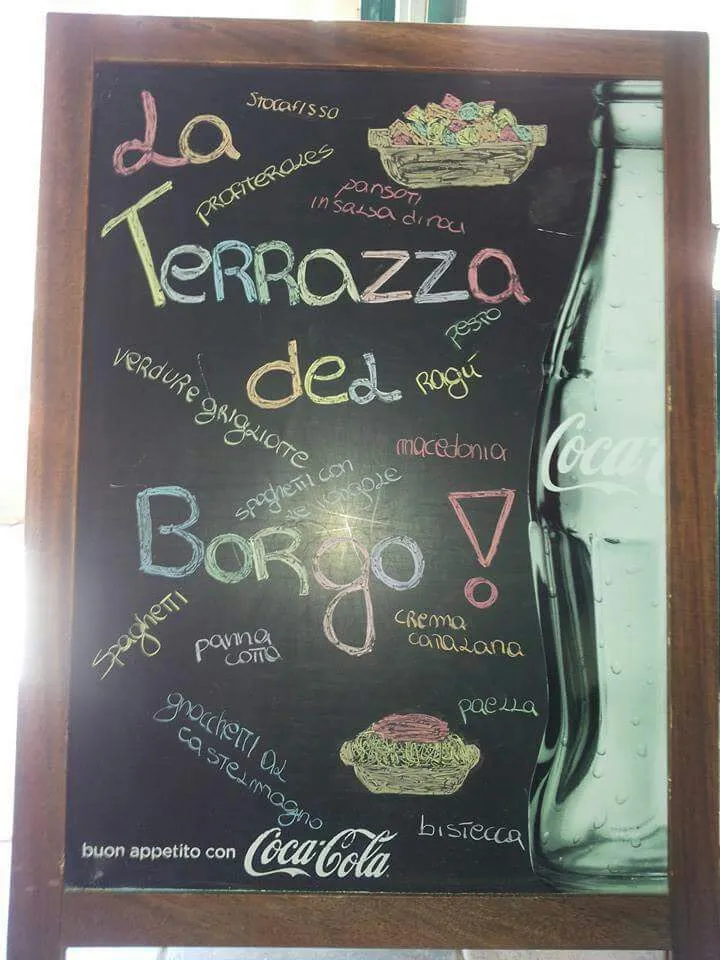 La
stocafisso
profiterales
pansoti
in salsa di noci
Terrazza
pesto
del
ragú
verdure grigliatte
macedonia
spaghetti con
le vongole
Borgo!
spaghetti
panna
cotta
crema
catalana
gnocchetti al
castelmagno
paella
bistecca
buon appetito con Coca-Cola
Coca-C